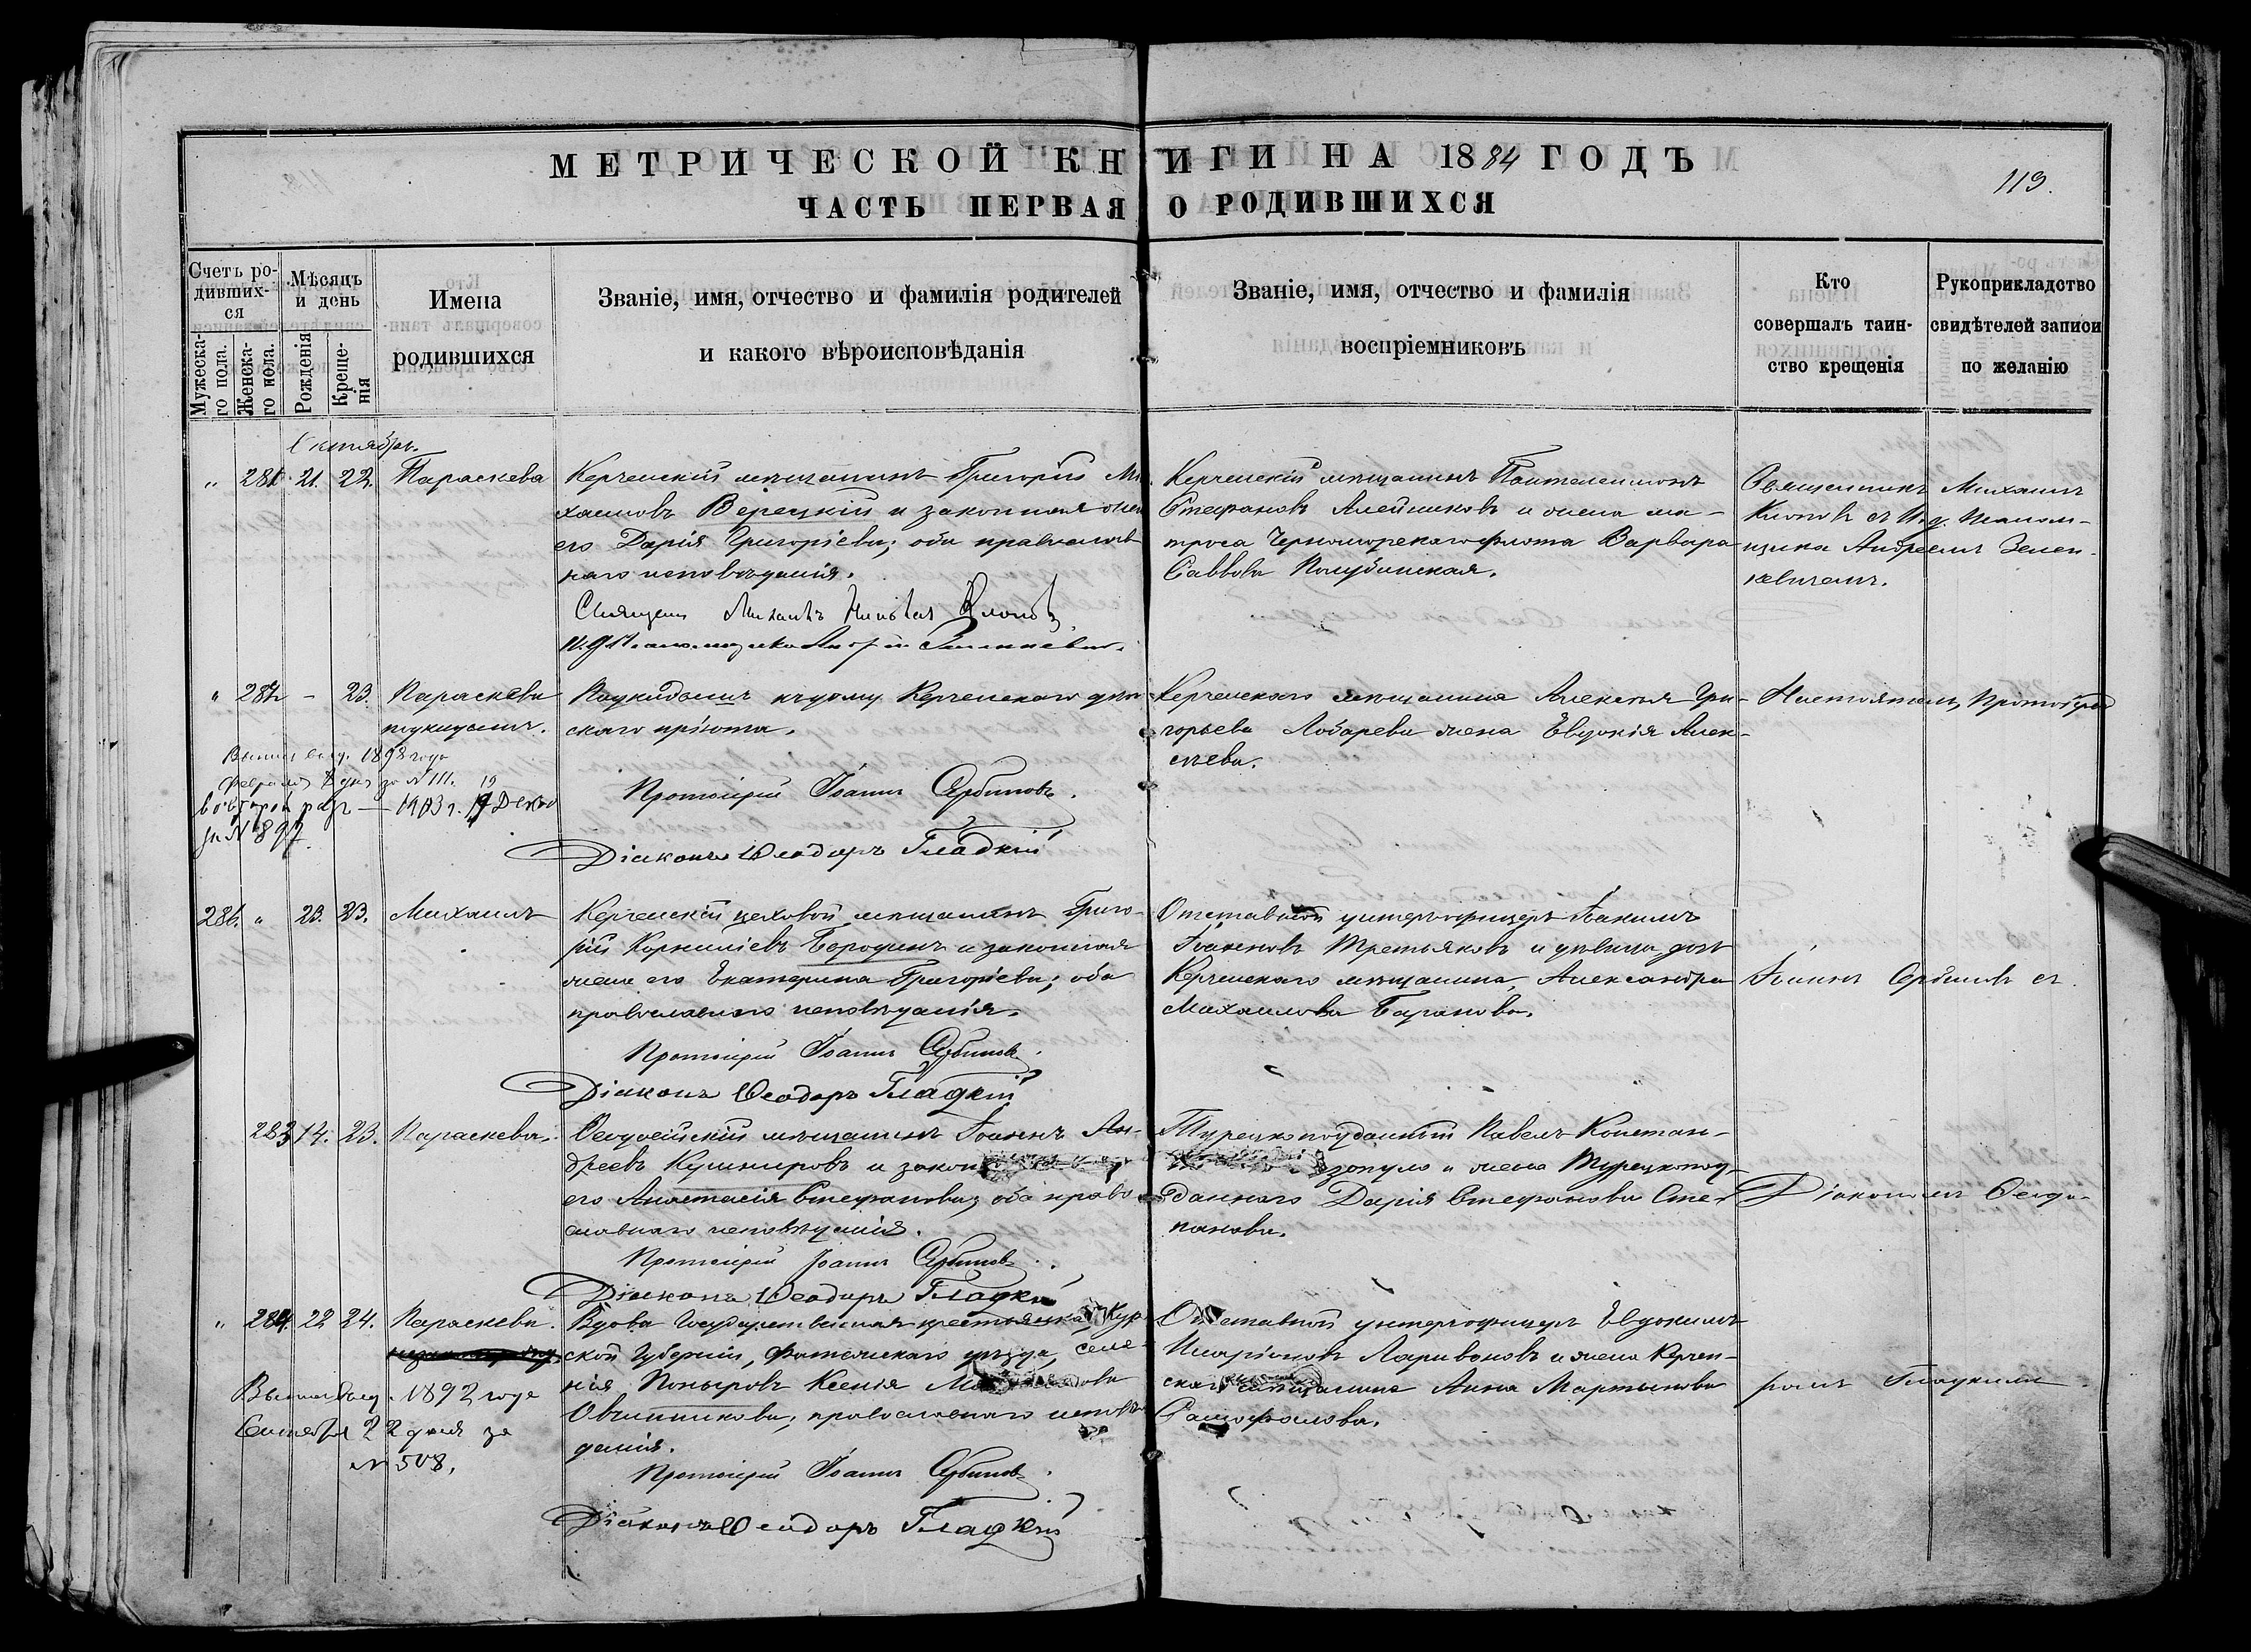 МЕТРИЧЕСКОЙ КНИГИ НА 1884 ГОДЪ
119.
ЧАСТЬ ПЕРВАЯ О РОДИВШИХСЯ
Счетъ родившихся
Мужескаго пола.
Женскаго пола.
Мѣсяцъ и день
Рожденія
Крещенія
Имена
родившихся
Званіе, имя, отчество и фамилія родителей
и какого вѣроисповѣданія
Званіе, имя, отчество и фамилія
воспріемниковъ
Кто
совершалъ таин-
ство крещенія
Рукоприкладство
свидѣтелей записи
по желанію
Октябрь.
" 281 21. 22. Параскева
Керченскій мѣщанинъ Григорій Ми-
хаиловъ Верецкій и законная жена
его Дарія Григоріева; оба православ-
наго исповѣданія.
Священ Михаилъ Клоповъ
Керченскій мѣщанинъ Пантелеимонъ
Стефановъ Алейниковъ и жена ма-
троса Черноморскаго флота Варвара
Саввова
Священникъ Михаилъ
Клоповъ съ И. д. псалом-
щика Андреемъ Зелен-
кевичемъ.
" 282 - 23. Параскева
подкидышъ.
Подкидышъ къ дому Керченскаго дѣт-
скаго пріюта.
Протоіерей Іоаннъ Сербиновъ.
Діаконъ Ѳеодоръ Гладкій
Керченскаго мѣщанина Алексѣя Гри-
горьева Лобарева жена Евдокія Алек-
сѣева.
Настоятель, Протоіерей
1898 года
Февраля за № 111.
во второй разъ — 1903 г. 19 Декаб
за № 897.
286. " 23. 23. Михаилъ
Керченскій цеховой мѣщанинъ Григо-
рій Корниліевъ Бородинъ и законная
жена его Екатерина Григоріева; оба
православнаго исповѣданія.
Протоіерей Іоаннъ Сербиновъ.
Діаконъ Ѳеодоръ Гладкій
Отставной унтеръ-офицеръ Іоакимъ
Іоакимовъ Третьяковъ и дѣвица дочь
Керченскаго мѣщанина, Александра
Михаилова Баранова.
Іоаннъ Сербиновъ съ
283 14. 23. Параскева.
Ѳеодосійскій мѣщанинъ Іоаннъ Ан-
дреевъ Кушнировъ и закон
его Анастасія Стефанова; оба право-
славнаго исповѣданія.
Протоіерей Іоаннъ Сербиновъ.
Діаконъ Ѳеодоръ Гладкій
Турецкоподданный Павелъ Констан-
и жена Турецкопод-
даннаго Дарія Стефанова Сте-
панова.
Діакономъ Ѳеодо-
" 284. 22 24. Параскева.
Вдова Государственная крестьянка Кур-
ской Губерніи, Фатежскаго уѣзда, селе-
нія Поныровъ Ксенія
Овчинникова, православнаго исповѣ-
данія.
Протоіерей Іоаннъ Сербиновъ.
Діаконъ Ѳеодоръ Гладкій
Отставной унтерофицеръ Евдокимъ
Иларіоновъ Ларивоновъ и жена Керчен-
скаго мѣщанина Анна Мартынова
Самофалова.
ромъ Гладкимъ.
1892 года
Сентября 22 дня за
№ 508.